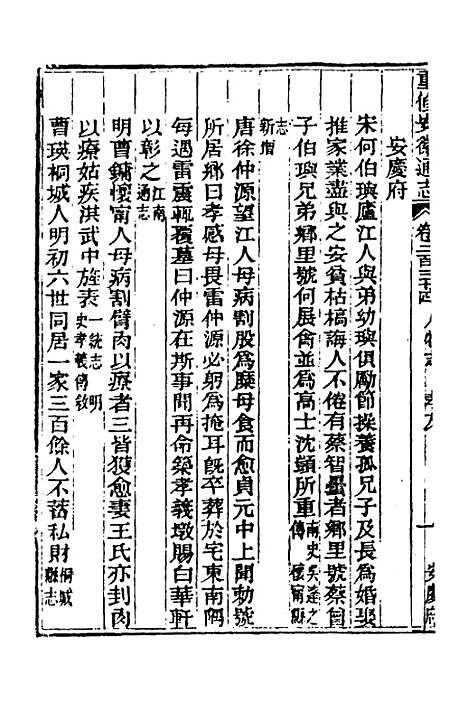 重修安徽通志 卷二百三十四 人物志 孝友 一 安慶府
安慶府
宋何伯璵廬江人與弟幼璵俱勵節操養孤兄子及長爲婚娶
推家業盡與之安貧枯槁誨人不倦有蔡智壘者鄉里號蔡曾
子伯璵兄弟鄉里號何展禽並爲高士沈顗所重南史吳逵之傳 懷甯縣
志新增
唐徐仲源望江人母病割股爲糜母食而愈貞元中上聞勅號
所居鄉曰孝感母畏雷仲源必躬爲掩耳旣卒葬於宅東南隅
每遇雷震輒覆墓曰仲源在斯事聞再命築孝義墩賜白華軒
以彰之江南通志
明曹鏞懷甯人母病割臂肉以療者三皆獲愈妻王氏亦刲肉
以療姑疾洪武中旌表一統志 明史孝義傳敘
曹瑛桐城人明初六世同居一家三百餘人不蓄私財桐城縣志